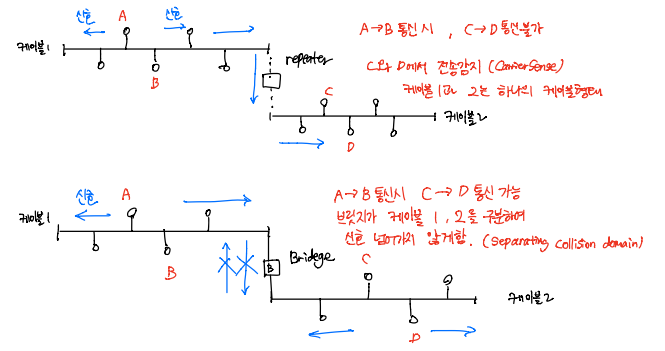 신호 A 신호
케이블1
B
repeater
C
케이블2
D
A→B 통신시 , C→D 통신불가
C와 D에서 전송감지 (CarrierSense)
케이블 1과 2는 하나의 케이블형태
신호 A
케이블1
B
B
Bridge
C
케이블2
D
A→B 통신시 C→D 통신 가능
브릿지가 케이블 1, 2를 구분하여
신호 넘어가지 않게함. (separating collision domain)